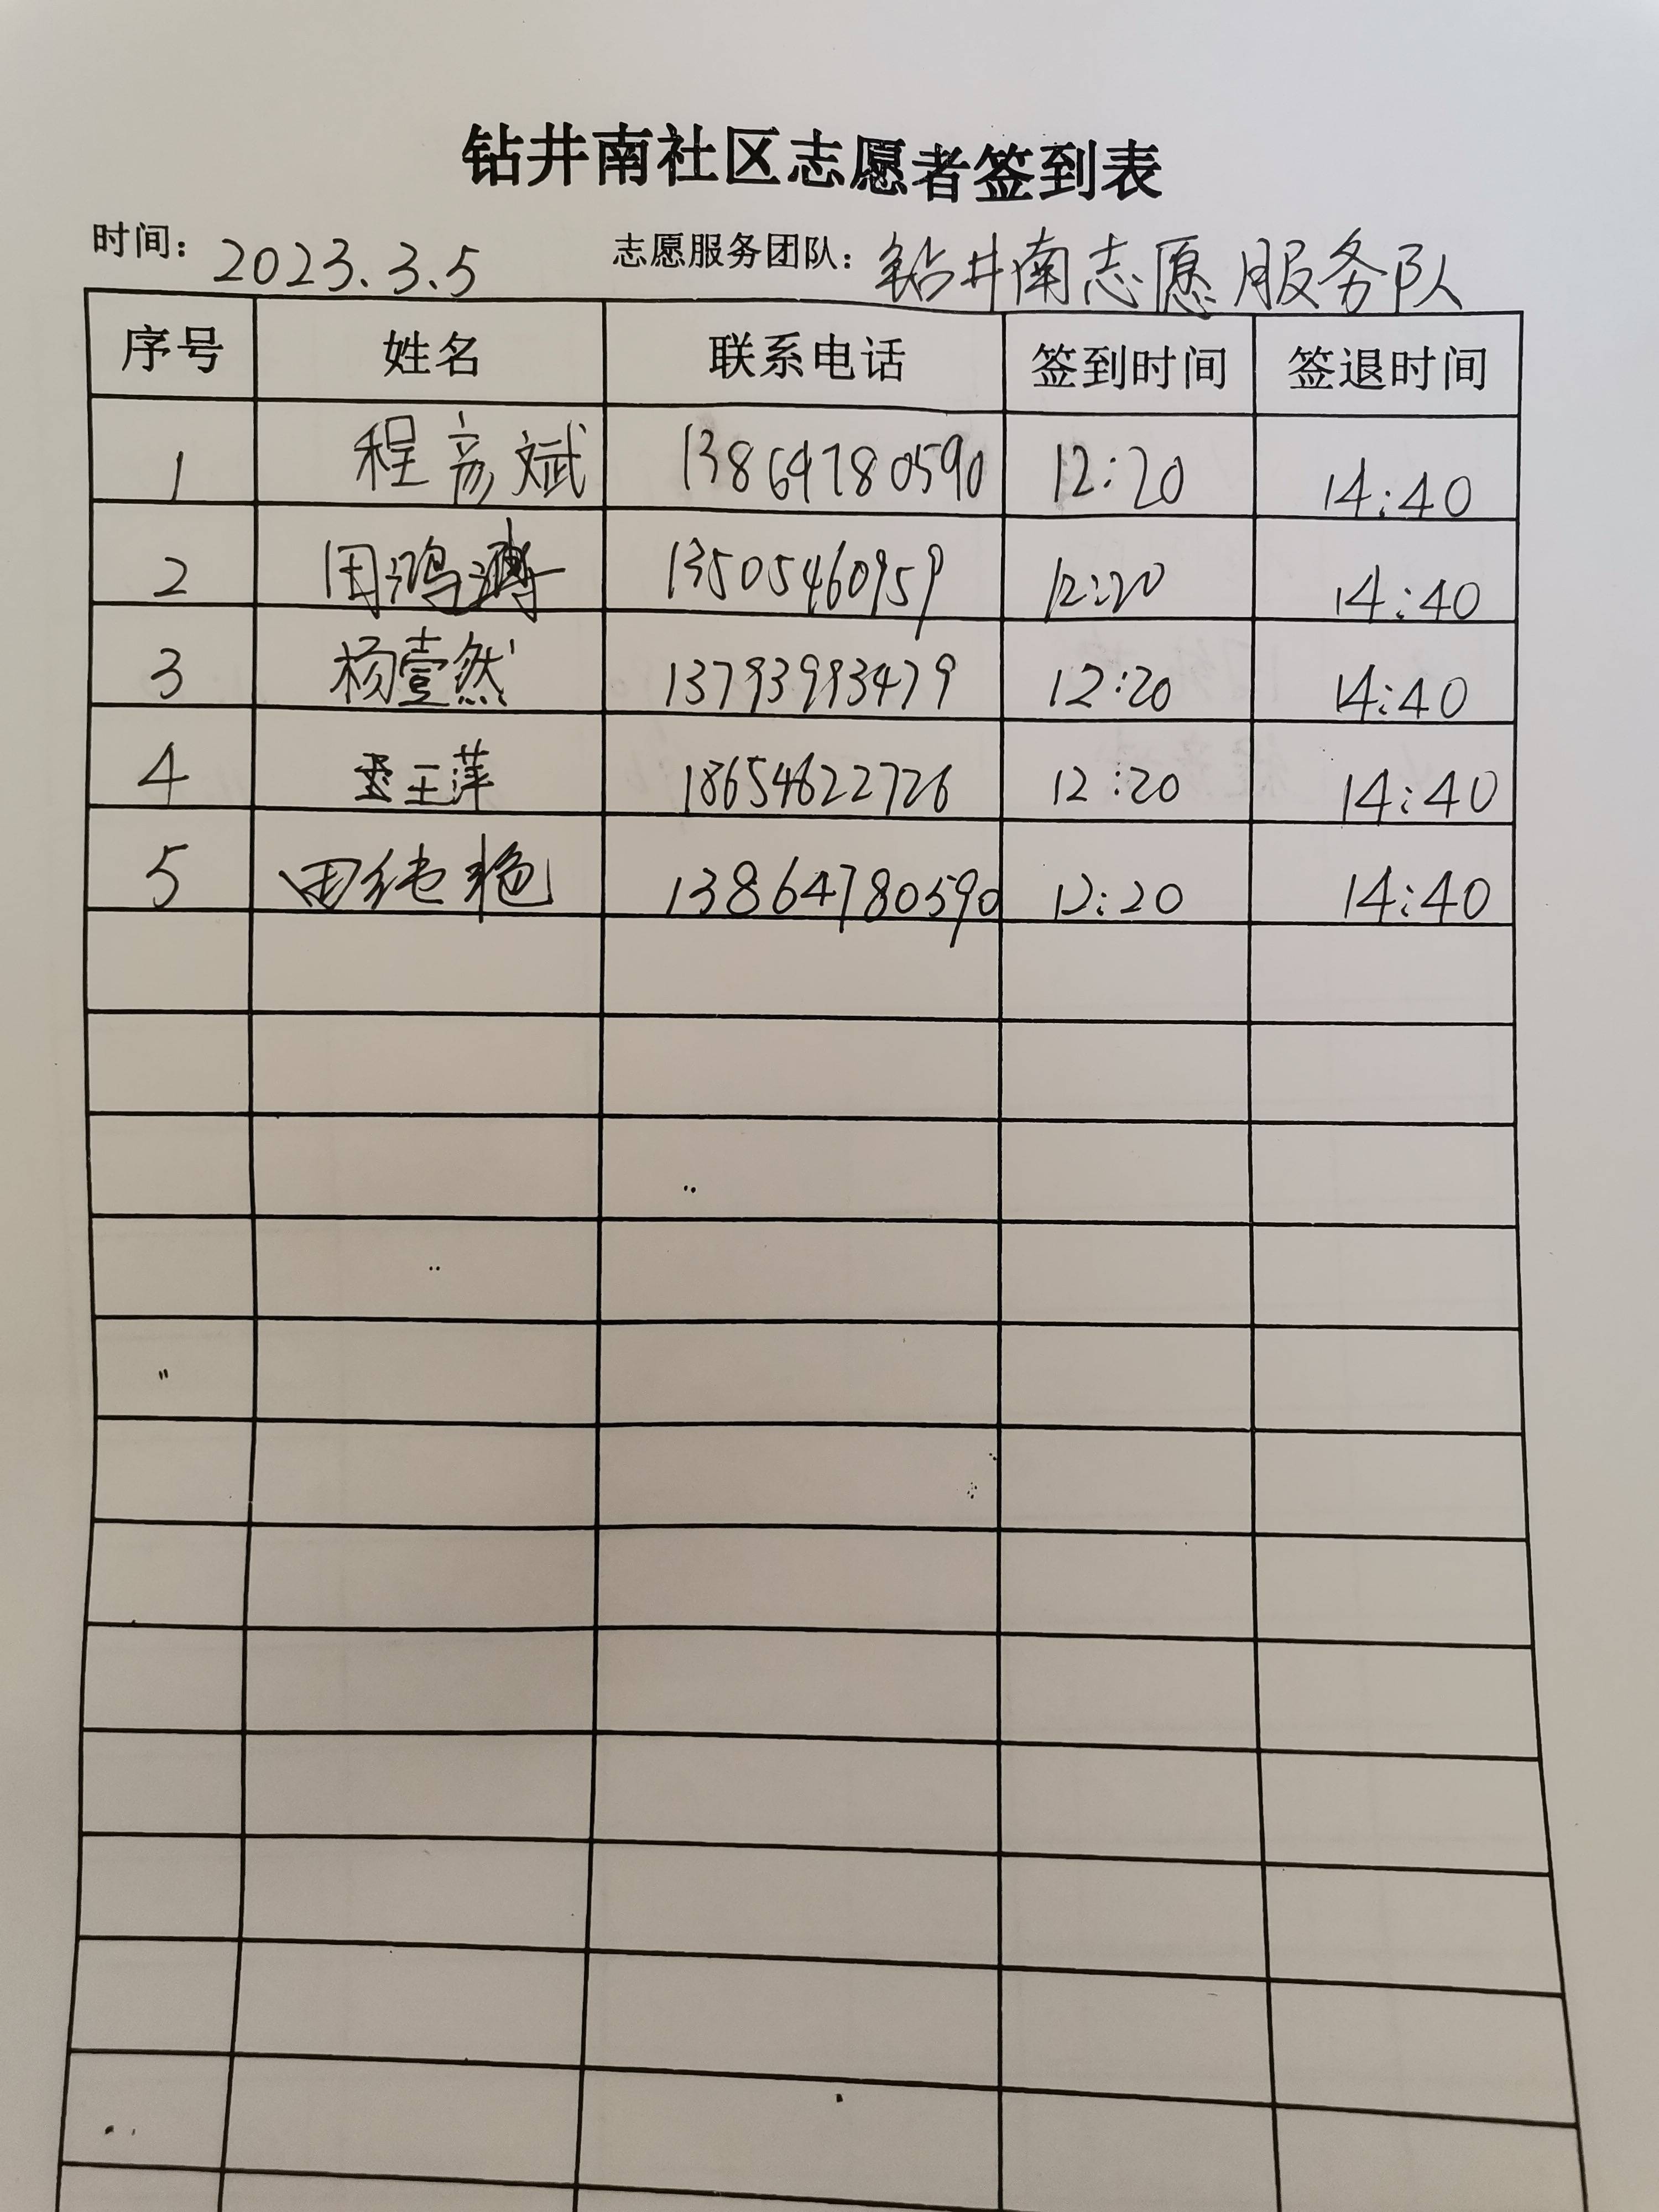 钻井南社区志愿者签到表
时间: 2023.3.5 志愿服务团队: 钻井南志愿服务队
序号 姓名 联系电话 签到时间 签退时间
1 程彦斌 13864780590 12:20 14:40
2 田鸿 13505460959 12:20 14:40
3 杨壹然 13793993479 12:20 14:40
4 王萍 18654622726 12:20 14:40
5 田纯艳 13864780590 12:20 14:40